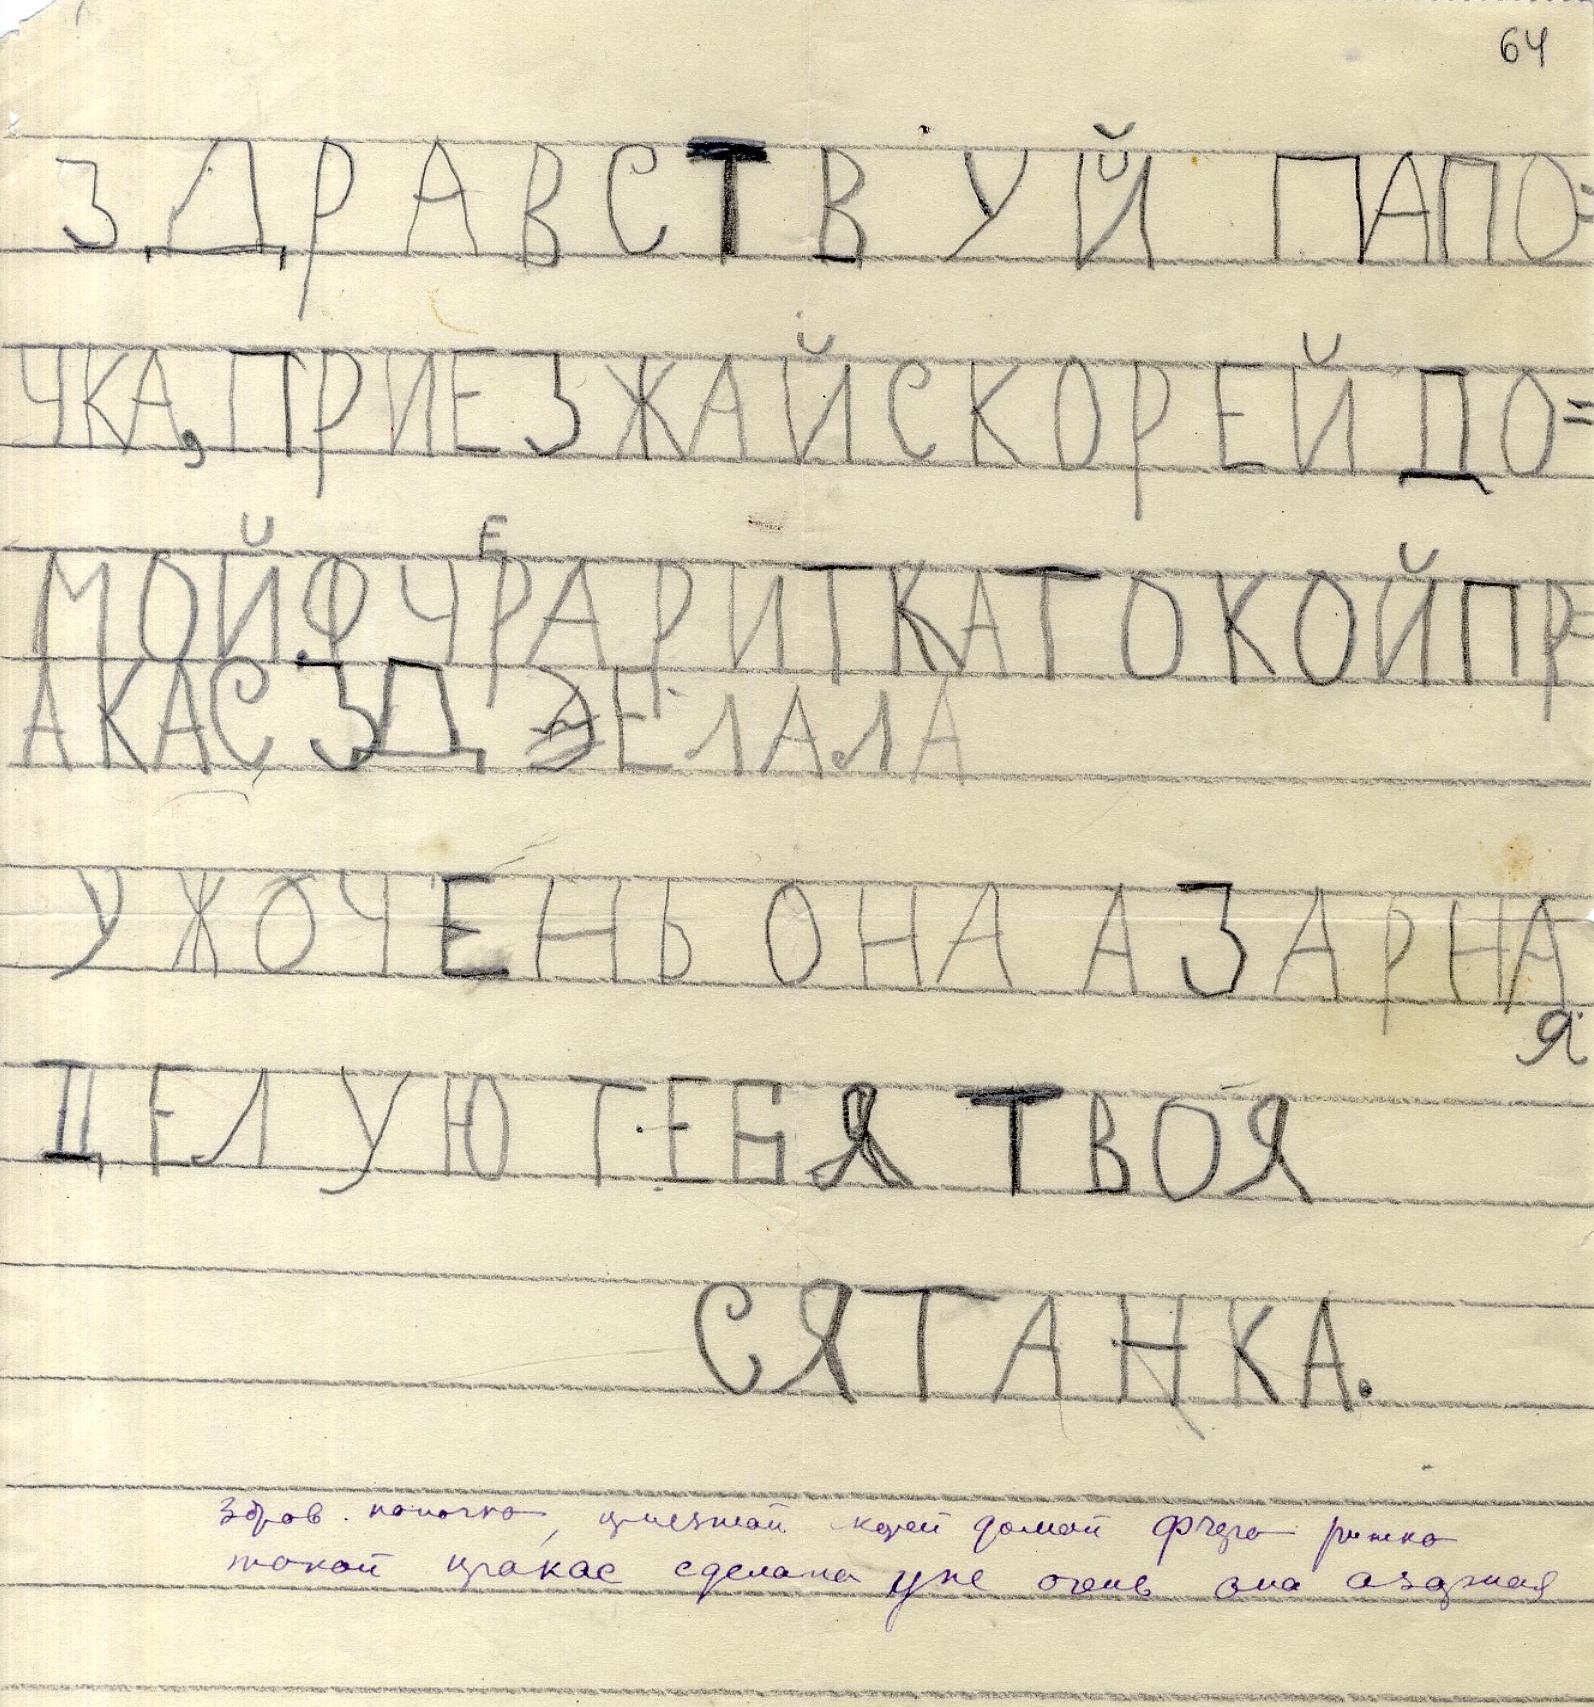 64
ЗДРАВСТВУЙ ПАПО=
ЧКА, ПРИЕЗЖАЙ СКОРЕЙ ДО=
МОЙ. ФЧЕРА РИТКА ТОКОЙ ПР=
АКАС ЗДЕЛАЛА
УЖ ОЧЕНЬ ОНА АЗАРНАЯ
ЦЕЛУЮ ТЕБЯ ТВОЯ
СЯТАНКА.
здрав. папочка, приезжай корей домой фчера ритка
токой пракас сделала уже очень она азарная